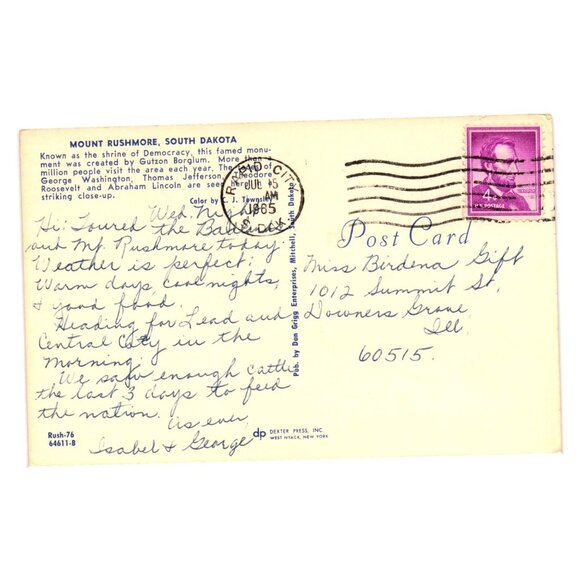 MOUNT RUSHMORE, SOUTH DAKOTA
Known as the shrine of Democracy, this famed monu-
ment was created by Gutzon Borglum. More than a
million people visit the area each year. The
George Washington, Thomas Jefferson, Theodore
Roosevelt and Abraham Lincoln are seen here in
striking close-up.
Color by J. Townsley
RAPID CITY
JUL 15
AM
1965
S. DAK
4¢
U.S. POSTAGE
Wed. Nite
Hi: Toured the Badlands
and Mt. Rushmore today.
Weather is perfect:
Warm days, cool nights,
& good food.
Heading for Lead and
Central City in the
morning.
We saw enough cattle
the last 3 days to feed
the nation.
As ever,
Isabel & George
Post Card
Miss Birdena Gift
1012 Summit St.
Downers Grove
Ill.
60515.
Pub. by Dan Grigg Enterprises, Mitchell, South Dakota
Rush-76
64611-B
dp DEXTER PRESS, INC.
WEST NYACK, NEW YORK